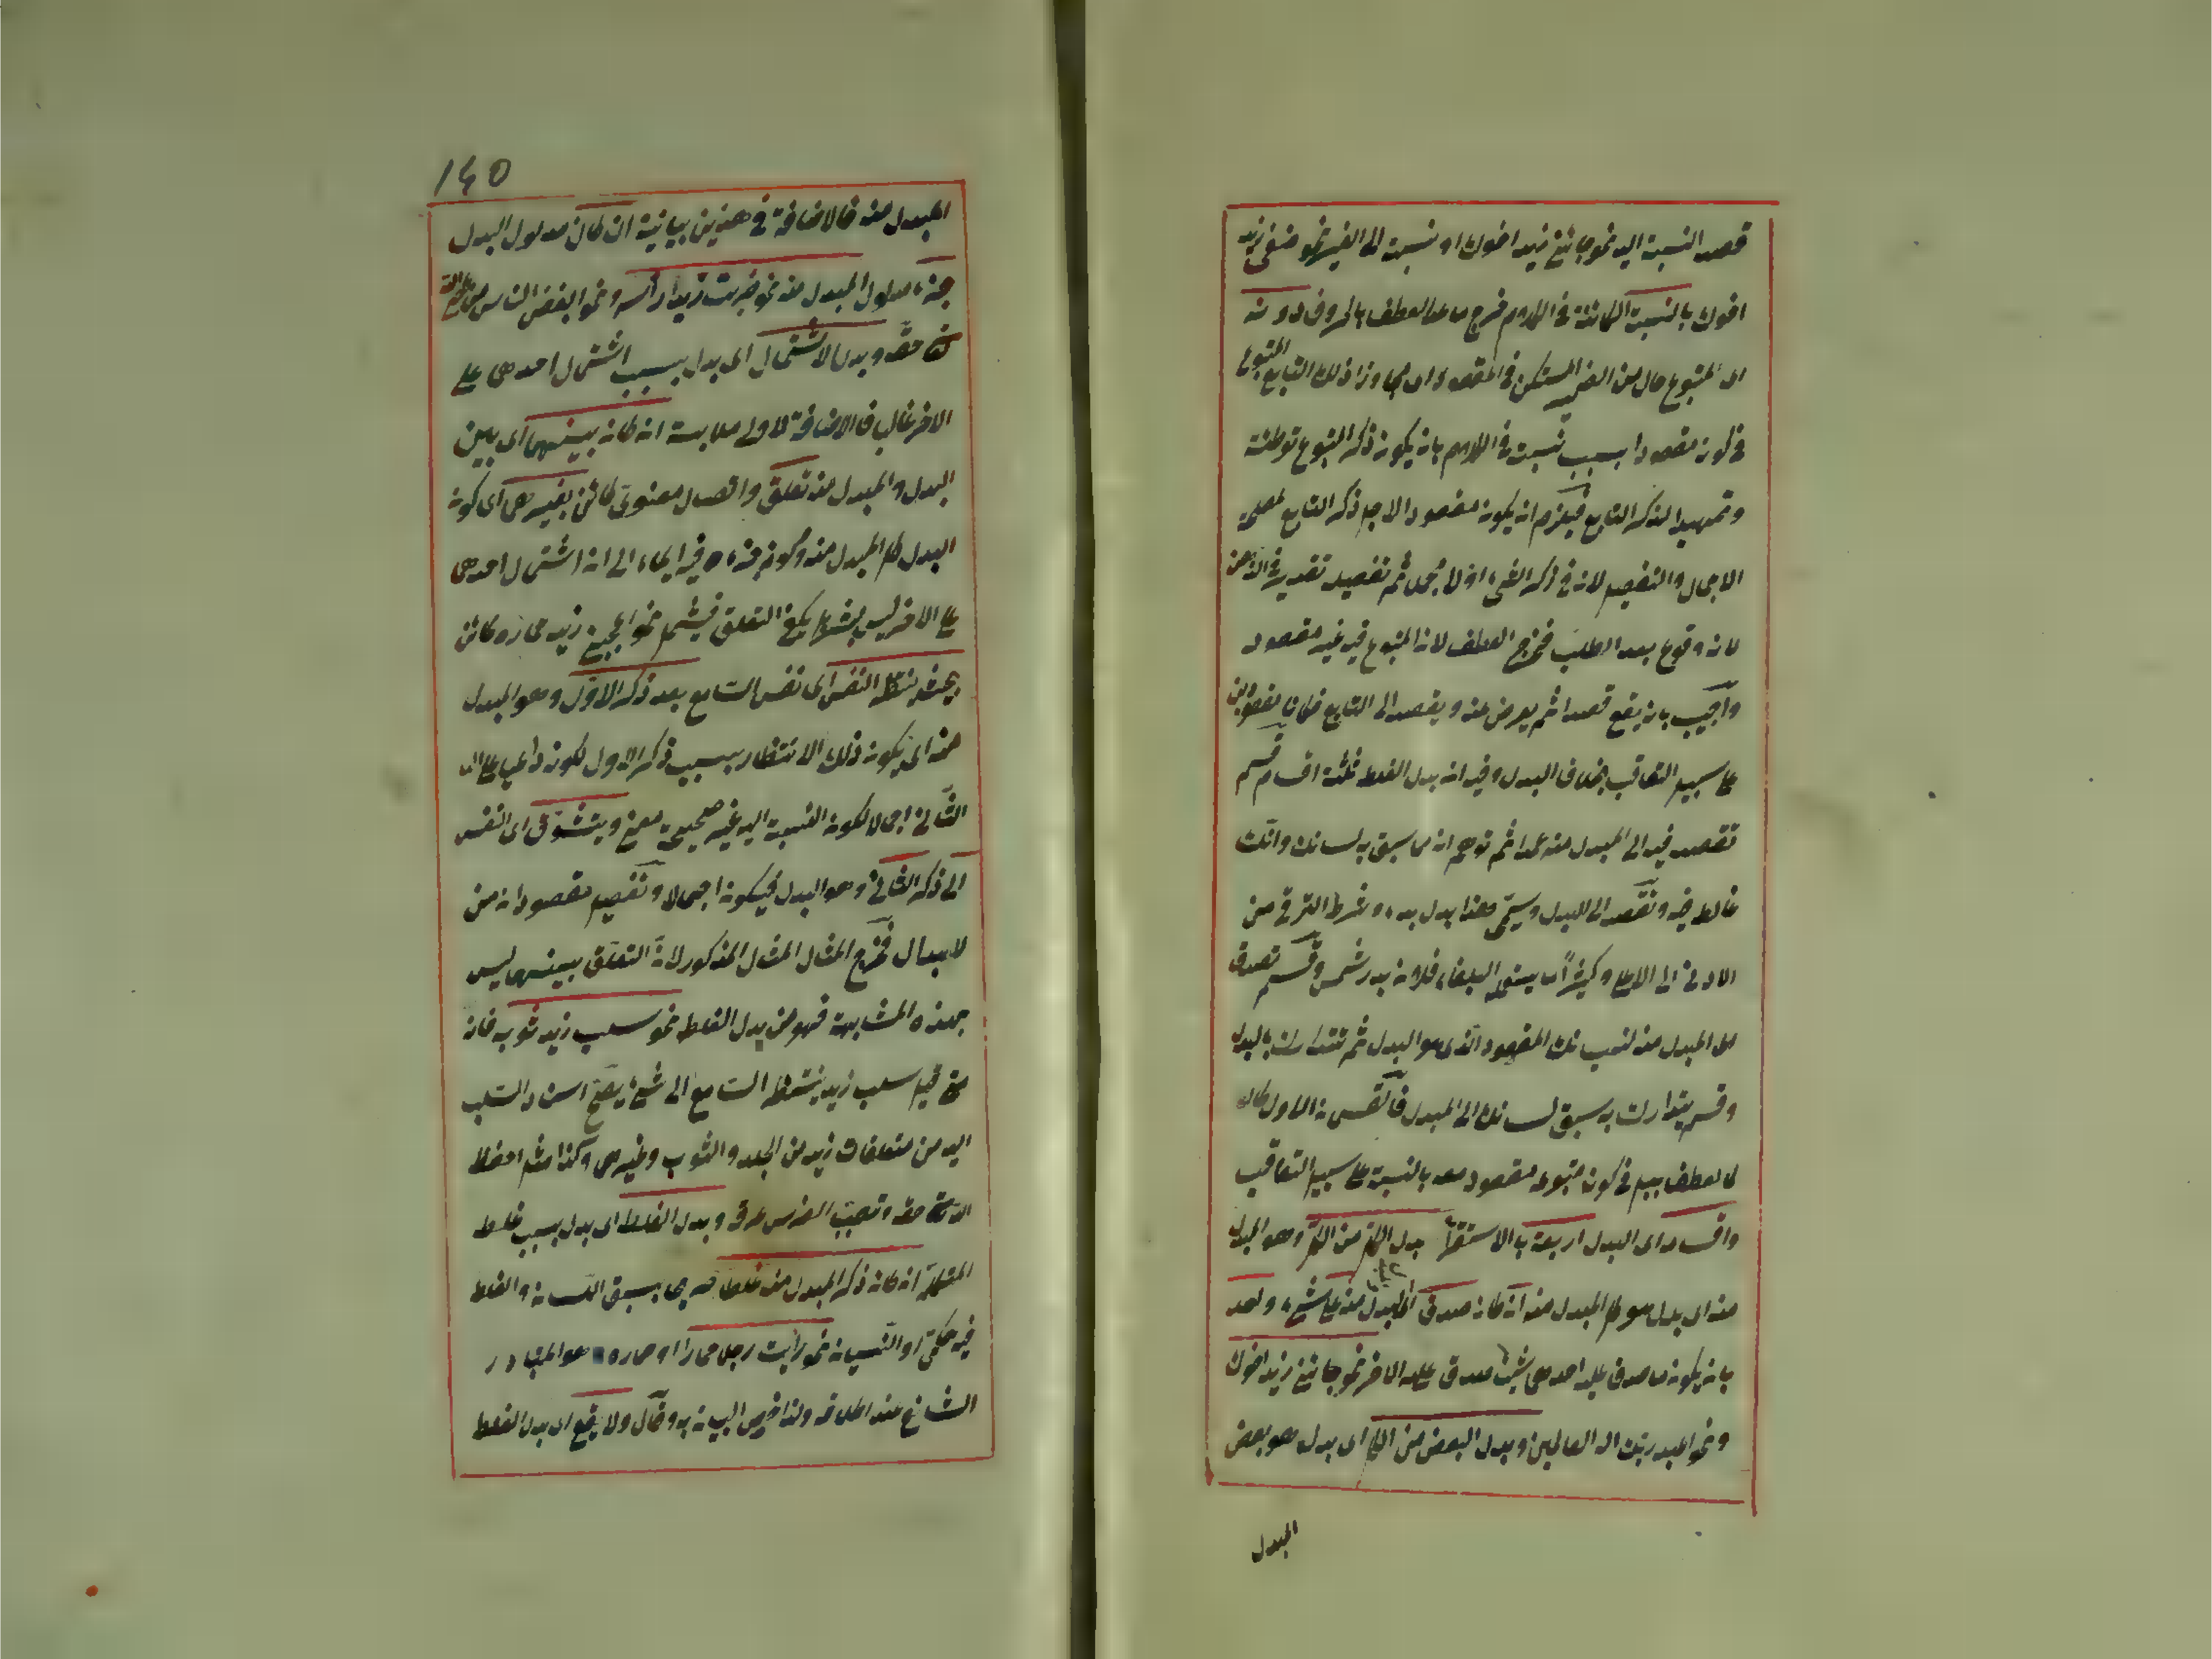 قصد النسبة اليه نحو جائني زيد اخوك او نسبته الى الغير نحو ضربني زيد
اخوك بالنسبة الكائنة في الكلام خرج ما عدا العطف بالحروف دونه
اى المتبوع حال من الضمير المستكن في المقصود اى مجاوزا ذلك التابع المتبوع
في كونه مقصودا بسبب نسبته في الكلام بان يكون ذكر المتبوع توطئة
وتمهيدا لذكر التابع فيلزم ان يكون مقصودا لاجل ذكر التابع لمصلحة
الاجمال والتفصيل لان في ذكر الشئ اولا مجملا ثم تفصيله تقديره في الذهن
لانه وقوع بعد الطلب فخرج العطف لان المتبوع فيه غير مقصود
واجيب بانه يقع قصدا ثم يعرض عنه ويقصد الى التابع فكانا مقصودين
على سبيل التعاقب بخلاف البدل وفيه ان بدل الغلط ثلثة اقسام قسم
تقصد فيه الى المبدل منه عمدا ثم توهم انه ما سبق به لسانك وانك
غالط فيه وتقصد الى البدل ويسمى هذا بدل بداء وشرطه الترقى من
الادنى الى الاعلى وكثيرا ما يستعمله البلغاء فلان بدر شمس وقسم تصدق
الى المبدل منه لنسيانك المقصود الذى هو البدل ثم تتدارك بالبدل
وقسم يتدارك به سبق لسانك الى المبدل فالقسمان الاولان
كالعطف ببل في كون متبوعه مقصودا معه بالنسبة على سبيل التعاقب
واقسام اى البدل اربعة بالاستقراء بدل الكل من الكل وهو المبدل
منه اى بدل هو كل المبدل منه ان كان صدق المبدل منه على شئ واحد
بان يكون ما صدق عليه احدهما شيئا صدق عليه الاخر نحو جائني زيد اخوك
ونحو اعبد ربك اله العالمين وبدل البعض من الكل اى بدل هو بعض
المبدل
140
المبدل منه فالاضافة في هذين بيانية ان كان مدلول البدل
جزء مدلول المبدل منه نحو ضربت زيدا رأسه ونحو ابغض الناس
حقه وبدل الاشتمال اى بدل بسبب اشتمال احدهما على
الاخر غالبا فالاضافة لادنى ملابسة ان كان بينهما اى بين
البدل والمبدل منه تعلق واتصال معنوى كائن بغيرهما اى كون
البدل كل المبدل منه وكونه جزءه فيه ايماء الى ان اشتمال احدهما
على الاخر ليس بشرط بل يكفي التعلق فيشمل نحو اعجبني زيد حماره كائن
بحيث ينتظر النفس اى نفس السامع بعد ذكر الاول وهو المبدل
منه اى يكون ذلك الانتظار بسبب ذكر الاول لكونه داعيا على
الثانى اجمالا لكون النسبة اليه غير صحيحة معنى ويتشوق اى النفس
الى ذكر الثانى وهو البدل فيكون اجمالا وتفصيلا مقصودان من
الابدال فخرج المثال المذكور لان التعلق بينهما ليس
بهذه المشابهة فهو من بدل الغلط نحو سلب زيد ثوبه فانه
متى قيل سلب زيد ينتظر السامع الى شئ يصح اسناد السلب
اليه من متعلقات زيد من الجلد والثوب وغيرهما وكذا مثل احفظ
الاستاذ حقه وتصبب الفرس عرقه وبدل الغلط اى بدل بسبب غلط
المتكلم ان كان ذكر المبدل منه غلطا صريحا بسبق اللسان والغلط
فيه حكمى او النسيان نحو رأيت رجلا حمارا او حماره هو المتبادر
الشائع عند اطلاقه ولذا خص البيان به وقال ولا يقع اى بدل الغلط